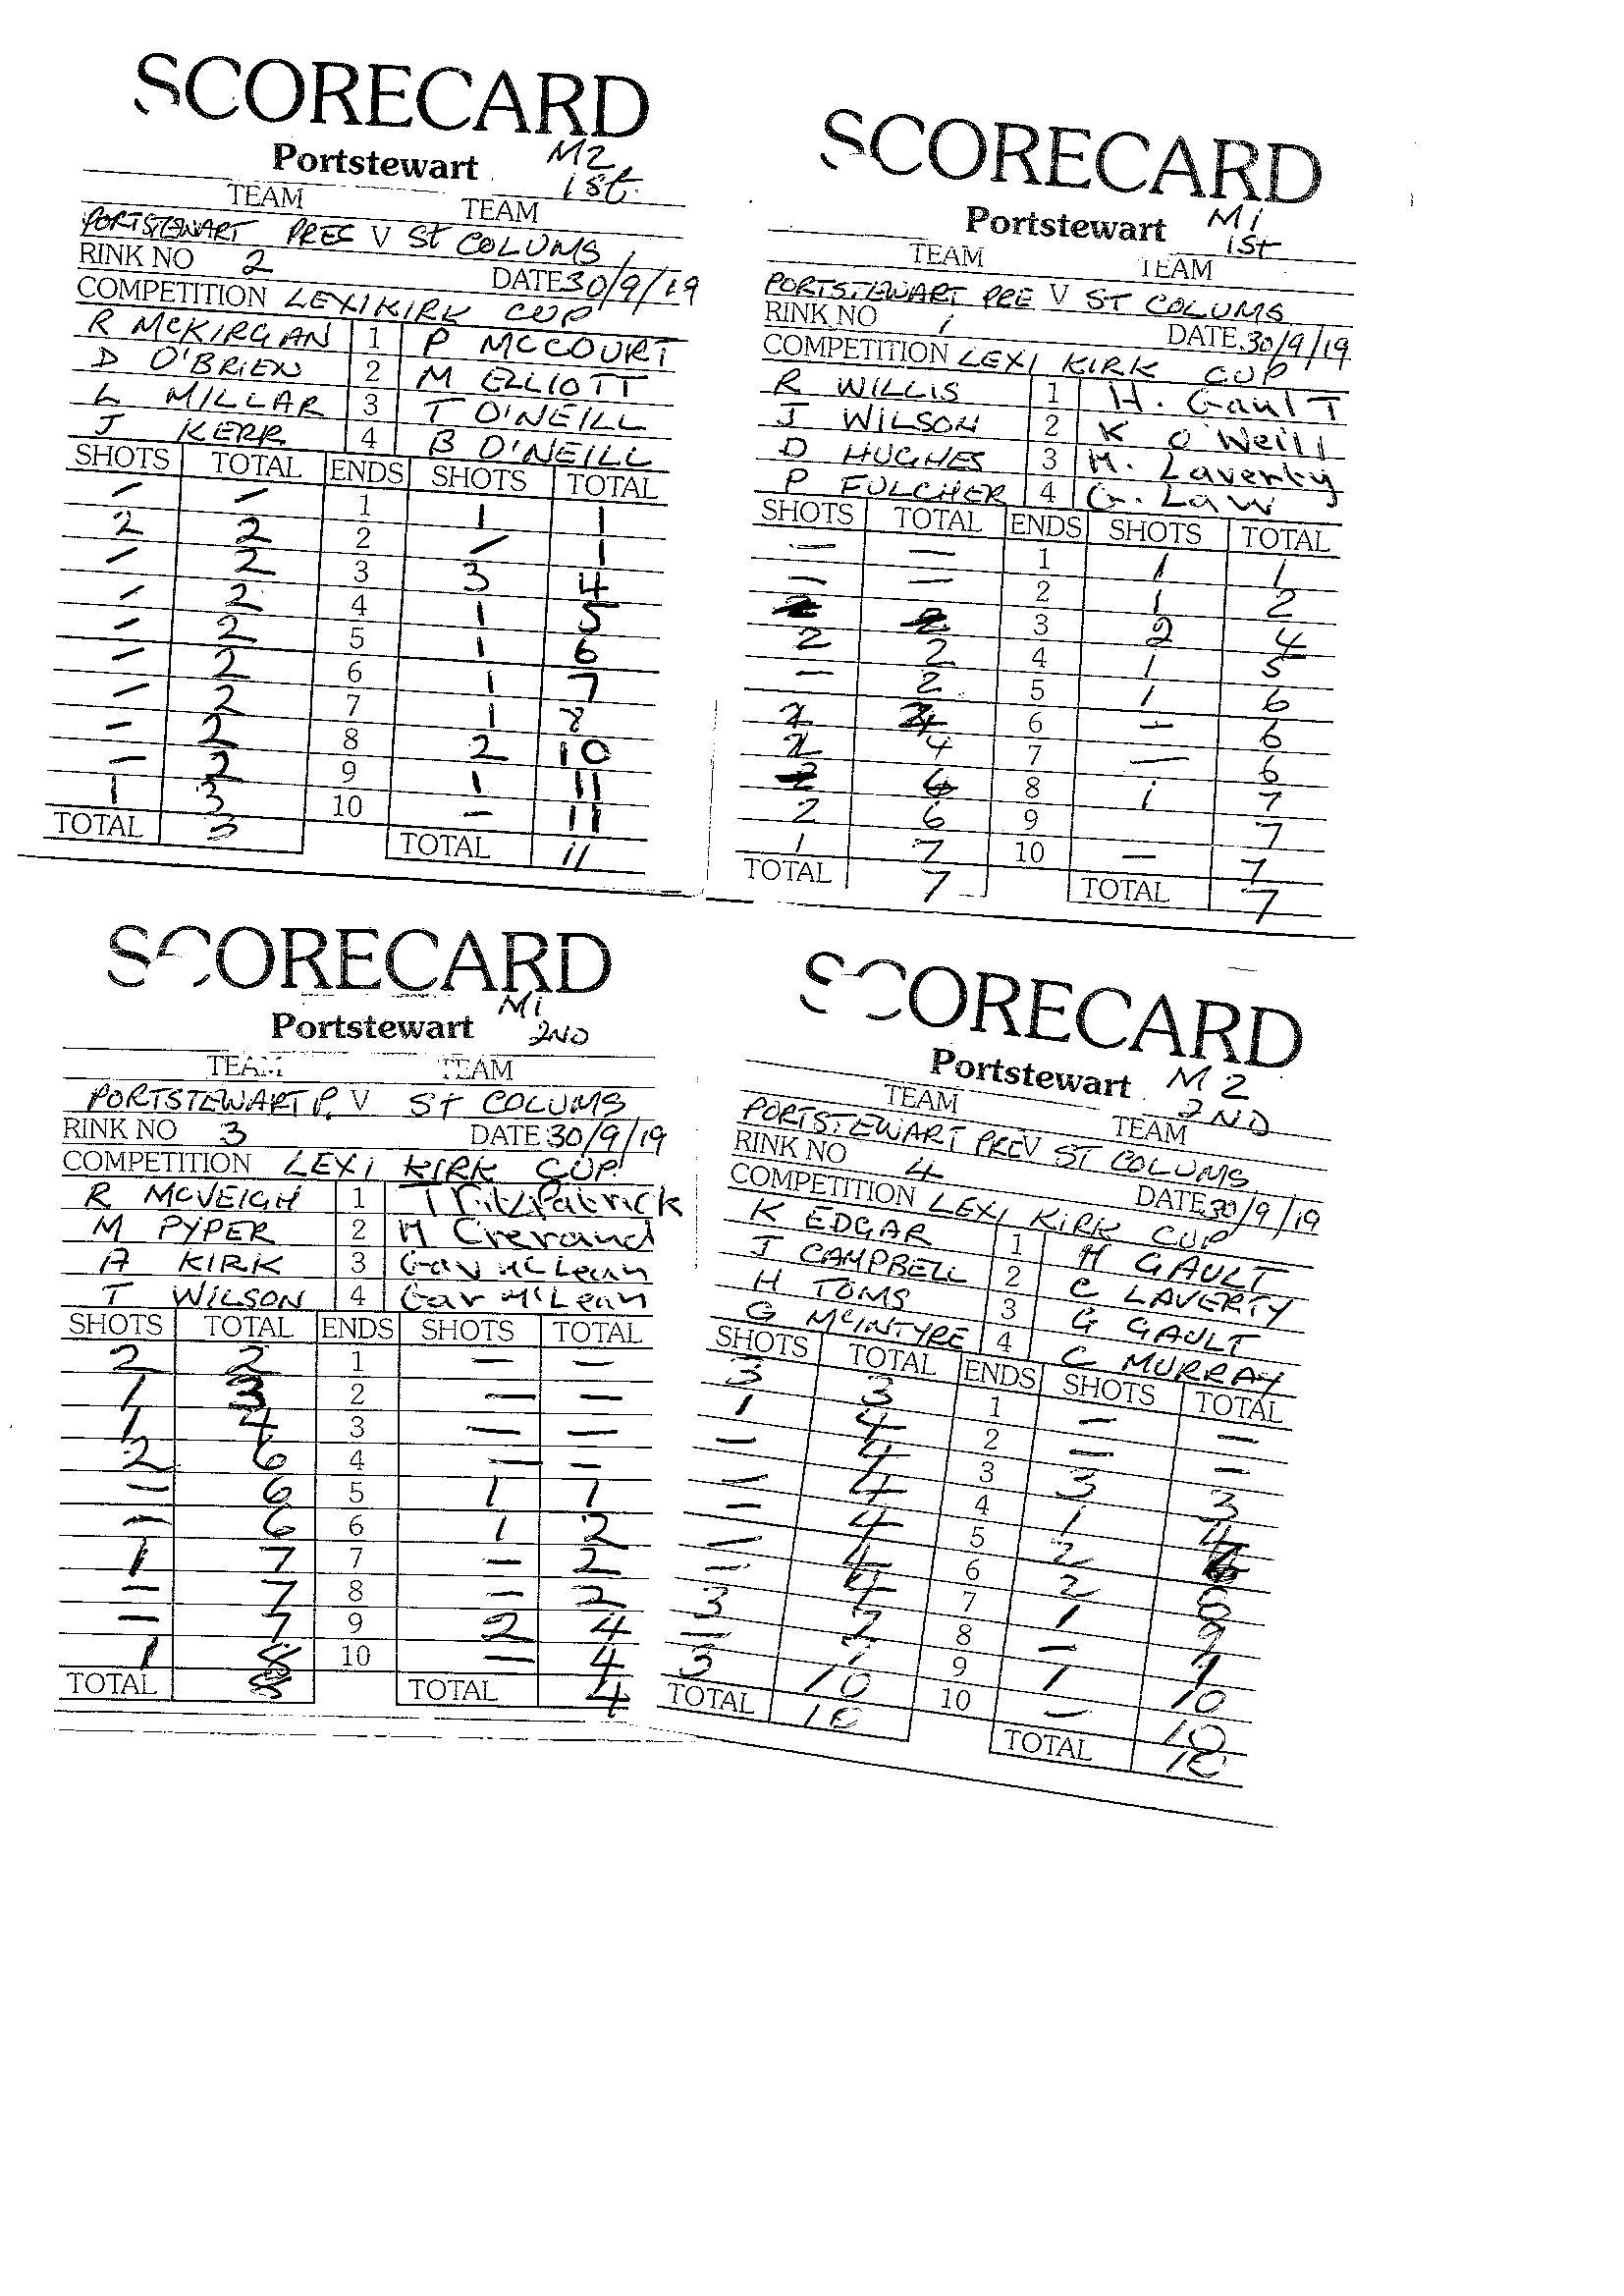 SCORECARD
Portstewart M2
1st.
TEAM TEAM
PORTSTEWART PRES V St COLUMS
RINK NO 2 DATE 30/9/19
COMPETITION LEXI KIRK CUP
R McKIRGAN 1 P MCCOURT
D O'BRIEN 2 M ELLIOTT
L MILLAR 3 T O'NEILL
J KERR 4 B O'NEILL
SHOTS TOTAL ENDS SHOTS TOTAL
– – 1 1 1
2 2 2 – 1
– 2 3 3 4
– 2 4 1 5
– 2 5 1 6
– 2 6 1 7
– 2 7 1 8
– 2 8 2 10
– 2 9 1 11
1 3 10 – 11
TOTAL 3 TOTAL 11
SCORECARD
Portstewart M1
1st
TEAM TEAM
PORTSTEWART PRE V ST COLUMS
RINK NO 1 DATE 30/9/19
COMPETITION LEXI KIRK CUP
R WILLIS 1 H. GaulT
J WILSON 2 K O'Neill
D HUGHES 3 M. Laverty
P FULCHER 4 G. Law
SHOTS TOTAL ENDS SHOTS TOTAL
– – 1 1 1
– – 2 1 2
3 2 4
2 2 4 1 5
– 2 5 1 6
2 4 6 – 6
2 4 7 – 6
6 8 1 7
2 6 9 7
1 7 10 – 7
TOTAL 7 TOTAL 7
SCORECARD
Portstewart M1
2ND
TEAM TEAM
PORTSTEWART P. V ST COLUMS
RINK NO 3 DATE 30/9/19
COMPETITION LEXI KIRK CUP
R MCVEIGH 1 T Fitzpatrick
M PYPER 2 M
A KIRK 3 Gav McLean
T WILSON 4 Gar McLean
SHOTS TOTAL ENDS SHOTS TOTAL
2 2 1 – –
1 3 2 – –
1 4 3 – –
2 6 4 – –
– 6 5 1 1
– 6 6 1 2
1 7 7 – 2
– 7 8 – 2
– 7 9 2 4
1 8 10 – 4
TOTAL 8 TOTAL 4
SCORECARD
Portstewart M2
2ND
TEAM TEAM
PORTSTEWART PRE V ST COLUMS
RINK NO 4 DATE 30/9/19
COMPETITION LEXI KIRK CUP
K EDGAR 1 H GAULT
J CAMPBELL 2 C LAVERTY
H TOMS 3 G GAULT
G McINTYRE 4 C MURRAY
SHOTS TOTAL ENDS SHOTS TOTAL
3 3 1 – –
1 4 2 – –
– 4 3 3 3
– 4 4 1 4
– 4 5 2 6
– 4 6 2 8
– 4 7 1 9
3 7 8 – 9
– 7 9 1 10
3 10 10 – 10
TOTAL 10 TOTAL 10